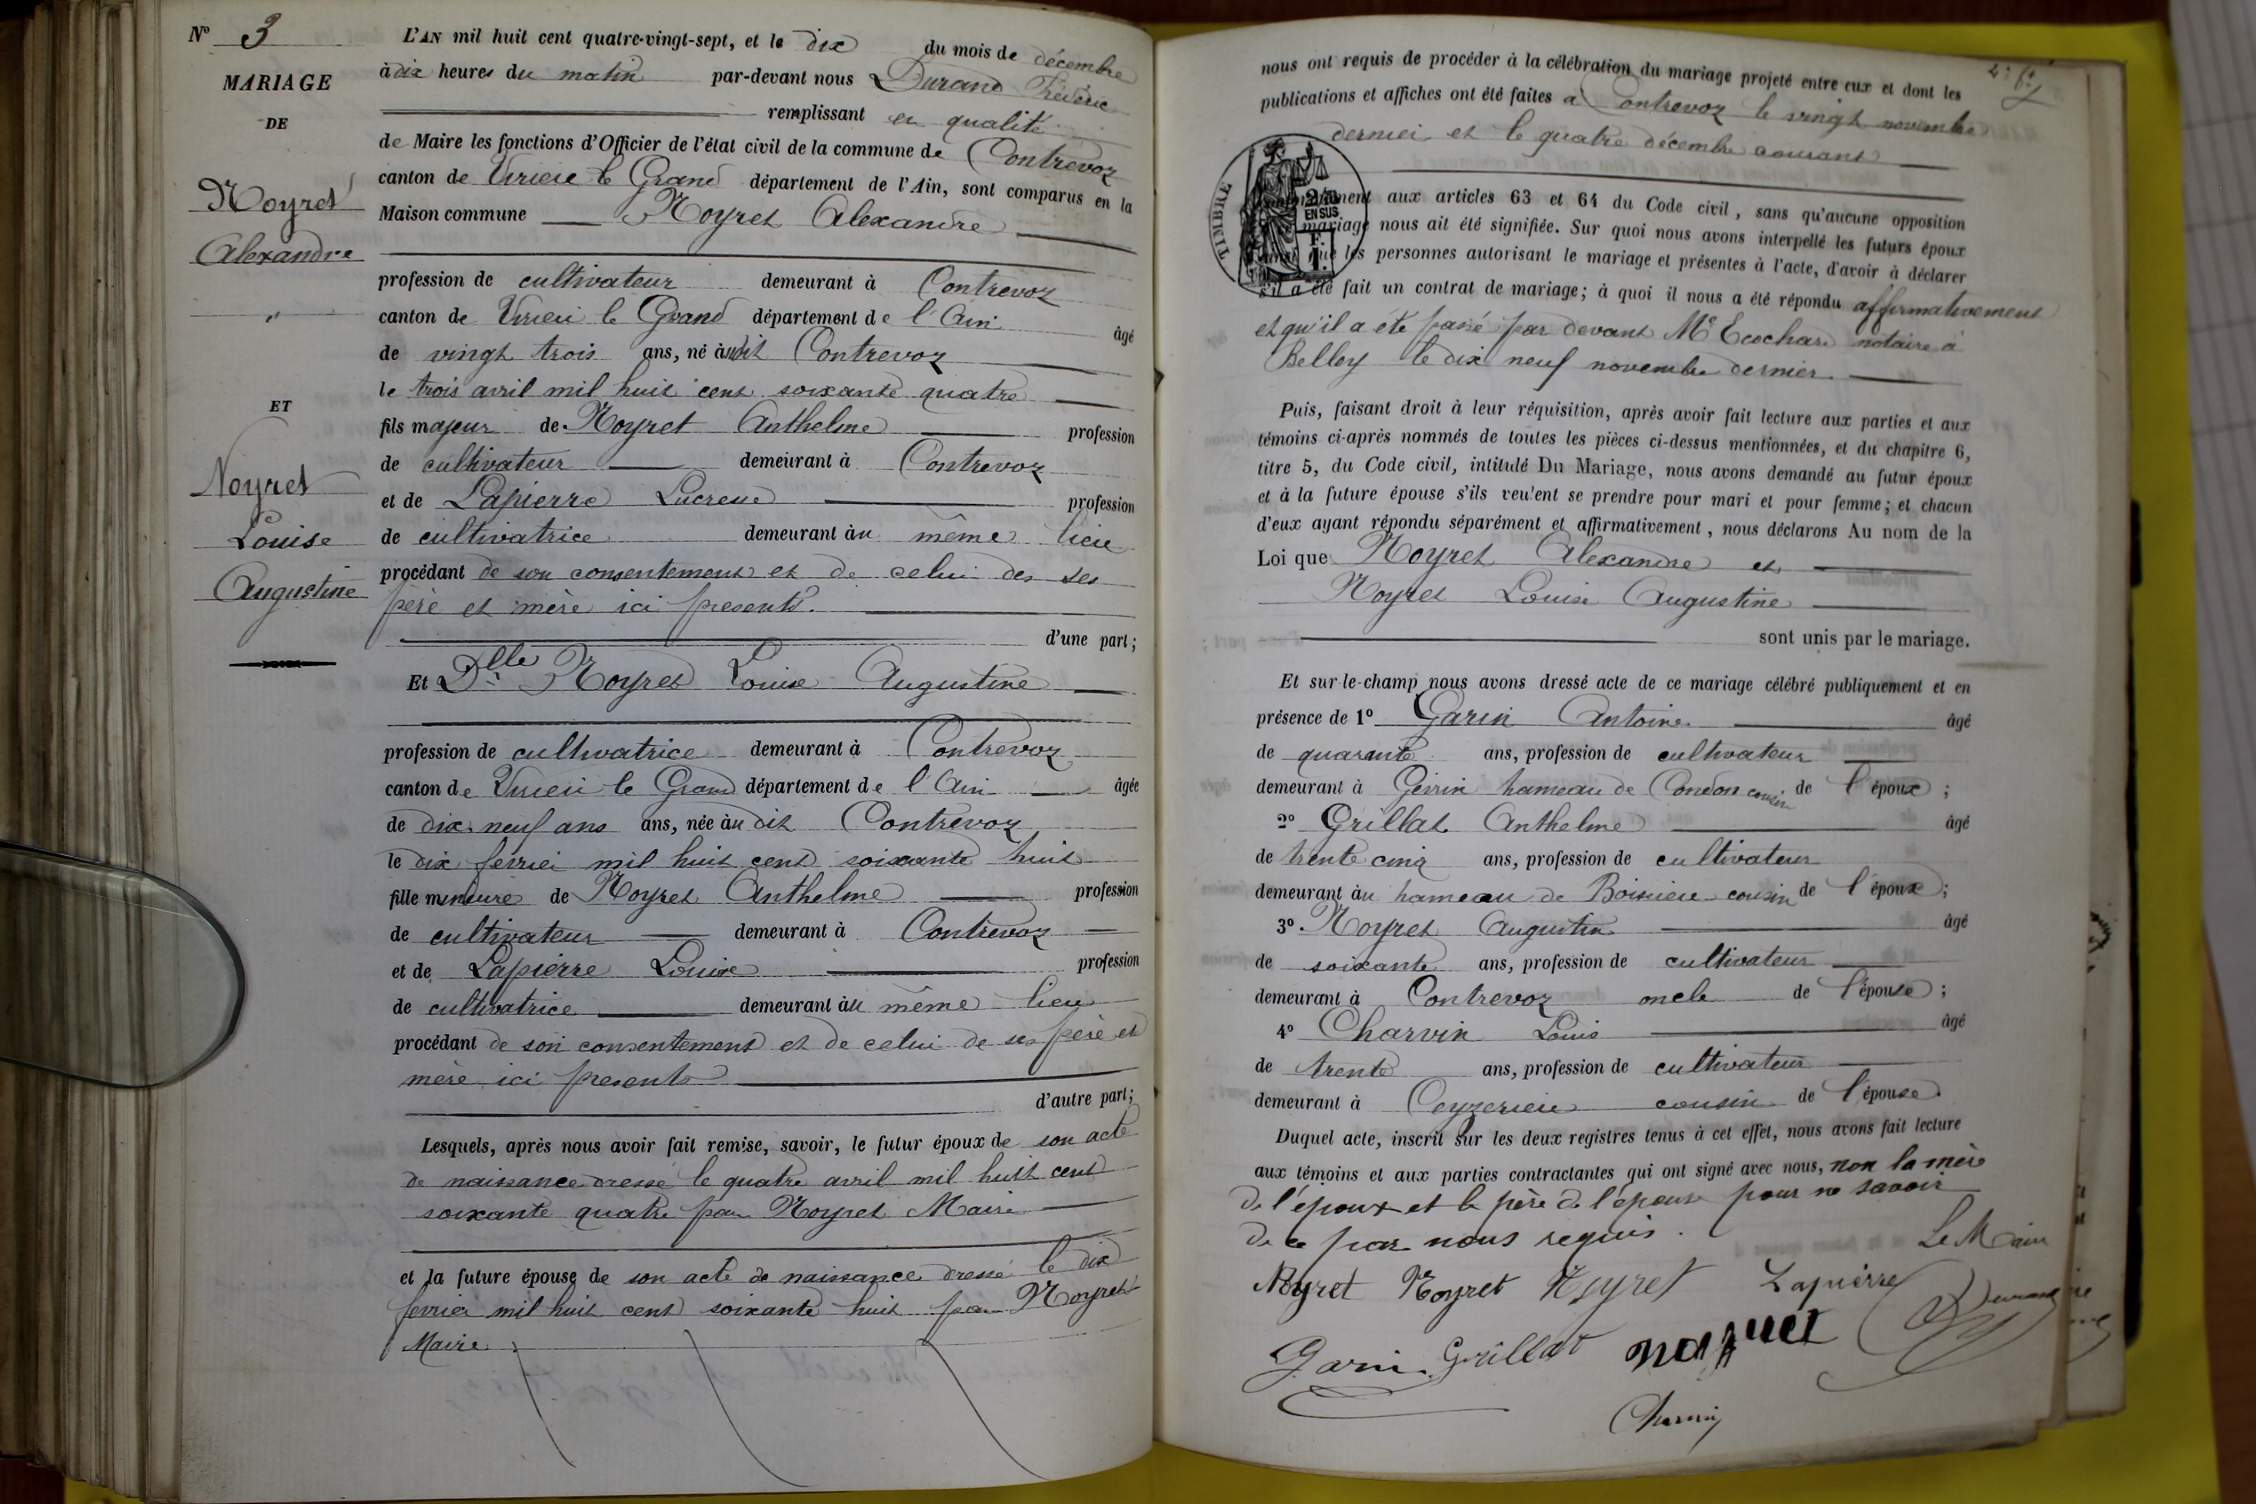 N° 3
MARIAGE
DE
Noyret
Alexandre
"
ET
Noyret
Louise
Augustine
L'AN mil huit cent quatre-vingt-sept, et le dix du mois de décembre
à dix heures du matin par-devant nous Durand Frédéric
remplissant en qualité
de Maire les fonctions d'Officier de l'état civil de la commune de Contrevoz
canton de Virieu le Grand département de l'Ain, sont comparus en la
Maison commune Noyret Alexandre
profession de cultivateur demeurant à Contrevoz
canton de Virieu le Grand département de l'Ain âgé
de vingt trois ans, né audit Contrevoz
le trois avril mil huit cent soixante quatre
fils majeur de Noyret Anthelme profession
de cultivateur demeurant à Contrevoz
et de Lapierre profession
de cultivatrice demeurant au même lieu
procédant de son consentement et de celui des ses
père et mère ici présents.
d'une part;
Et Dlle Noyret Louise Augustine
profession de cultivatrice demeurant à Contrevoz
canton de Virieu le Grand département de l'Ain âgée
de dix neuf ans ans, née audit Contrevoz
le dix février mil huit cent soixante huit
fille mineure de Noyret Anthelme profession
de cultivateur demeurant à Contrevoz
et de Lapierre Louise profession
de cultivatrice demeurant au même lieu
procédant de son consentement et de celui de ses père et
mère ici présents
d'autre part;
Lesquels, après nous avoir fait remise, savoir, le futur époux de son acte
de naissance dressé le quatre avril mil huit cent
soixante quatre par Noyret Maire
et la future épouse de son acte de naissance dressé le dix
février mil huit cent soixante huit par Noyret
Maire.
nous ont requis de procéder à la célébration du mariage projeté entre eux et dont les
publications et affiches ont été faites à Contrevoz le vingt novembre
dernier et le quatre décembre courant
TIMBRE
2/10
EN SUS
F.
1.
aux articles 63 et 64 du Code civil, sans qu'aucune opposition
mariage nous ait été signifiée. Sur quoi nous avons interpellé les futurs époux
que les personnes autorisant le mariage et présentes à l'acte, d'avoir à déclarer
s'il a été fait un contrat de mariage; à quoi il nous a été répondu affirmativement
et qu'il a été passé par devant Me Ecochard notaire à
Belley le dix neuf novembre dernier.
Puis, faisant droit à leur réquisition, après avoir fait lecture aux parties et aux
témoins ci-après nommés de toutes les pièces ci-dessus mentionnées, et du chapitre 6,
titre 5, du Code civil, intitulé Du Mariage, nous avons demandé au futur époux
et à la future épouse s'ils veulent se prendre pour mari et pour femme; et chacun
d'eux ayant répondu séparément et affirmativement, nous déclarons Au nom de la
Loi que Noyret Alexandre et
Noyret Louise Augustine
sont unis par le mariage.
Et sur-le-champ nous avons dressé acte de ce mariage célébré publiquement et en
présence de 1° Garin Antoine âgé
de quarante ans, profession de cultivateur
demeurant à Gevrin hameau de Condon cousin de l'époux;
2° Grillat Anthelme âgé
de trente cinq ans, profession de cultivateur
demeurant au hameau de Boissieu cousin de l'époux;
3°. Noyret Augustin âgé
de soixante ans, profession de cultivateur
demeurant à Contrevoz oncle de l'épouse;
4° Charvin Louis âgé
de trente ans, profession de cultivateur
demeurant à Ceyzerieu cousin de l'épouse.
Duquel acte, inscrit sur les deux registres tenus à cet effet, nous avons fait lecture
aux témoins et aux parties contractantes qui ont signé avec nous, non la mère
de l'époux et le père de l'épouse pour ne savoir
de ce par nous requis.
Le Maire
Noyret Noyret Noyret Lapierre Durand
Garin Grillat
Charvin